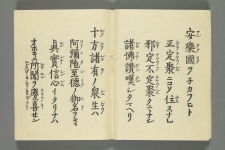 安樂國ヲネカフヒト
正定聚ニコソ住スナレ
邪定不定聚クニナシ
諸佛讚嘆シタマヘリ
十方諸有ノ衆生ハ
阿彌陀至德ノ御名ヲキキ
眞實信心イタリナハ
オホキニ所聞ヲ慶喜セン